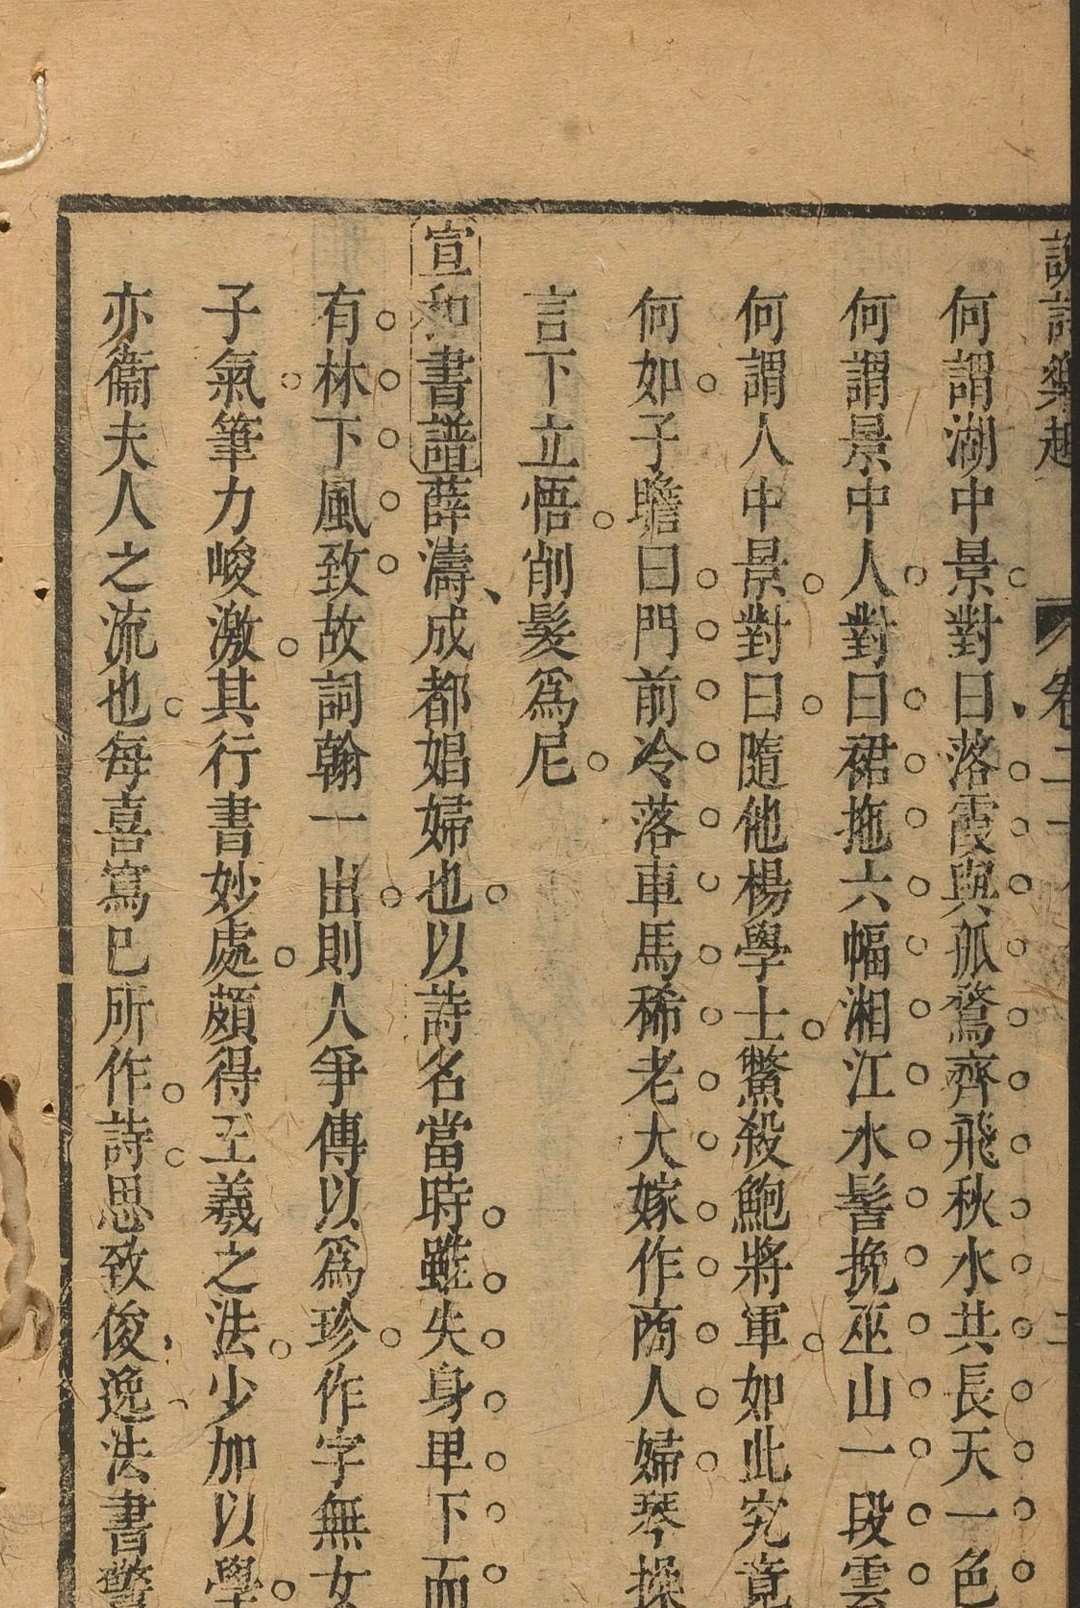 說詩樂趣 卷二十
何謂湖中景對曰落霞與孤鶩齊飛秋水共長天一色
何謂景中人對曰裙拖六幅湘江水髻挽巫山一段雲
何謂人中景對曰隨他楊學士鱉殺鮑將軍如此究竟
何如子瞻曰門前冷落車馬稀老大嫁作商人婦琴操
言下立悟削髮爲尼
宣和書譜薛濤成都娼婦也以詩名當時雖失身卑下而
有林下風致故詞翰一出則人爭傳以爲珍作字無女
子氣筆力峻激其行書妙處頗得王羲之法少加以學
亦衞夫人之流也每喜寫己所作詩思致俊逸法書警